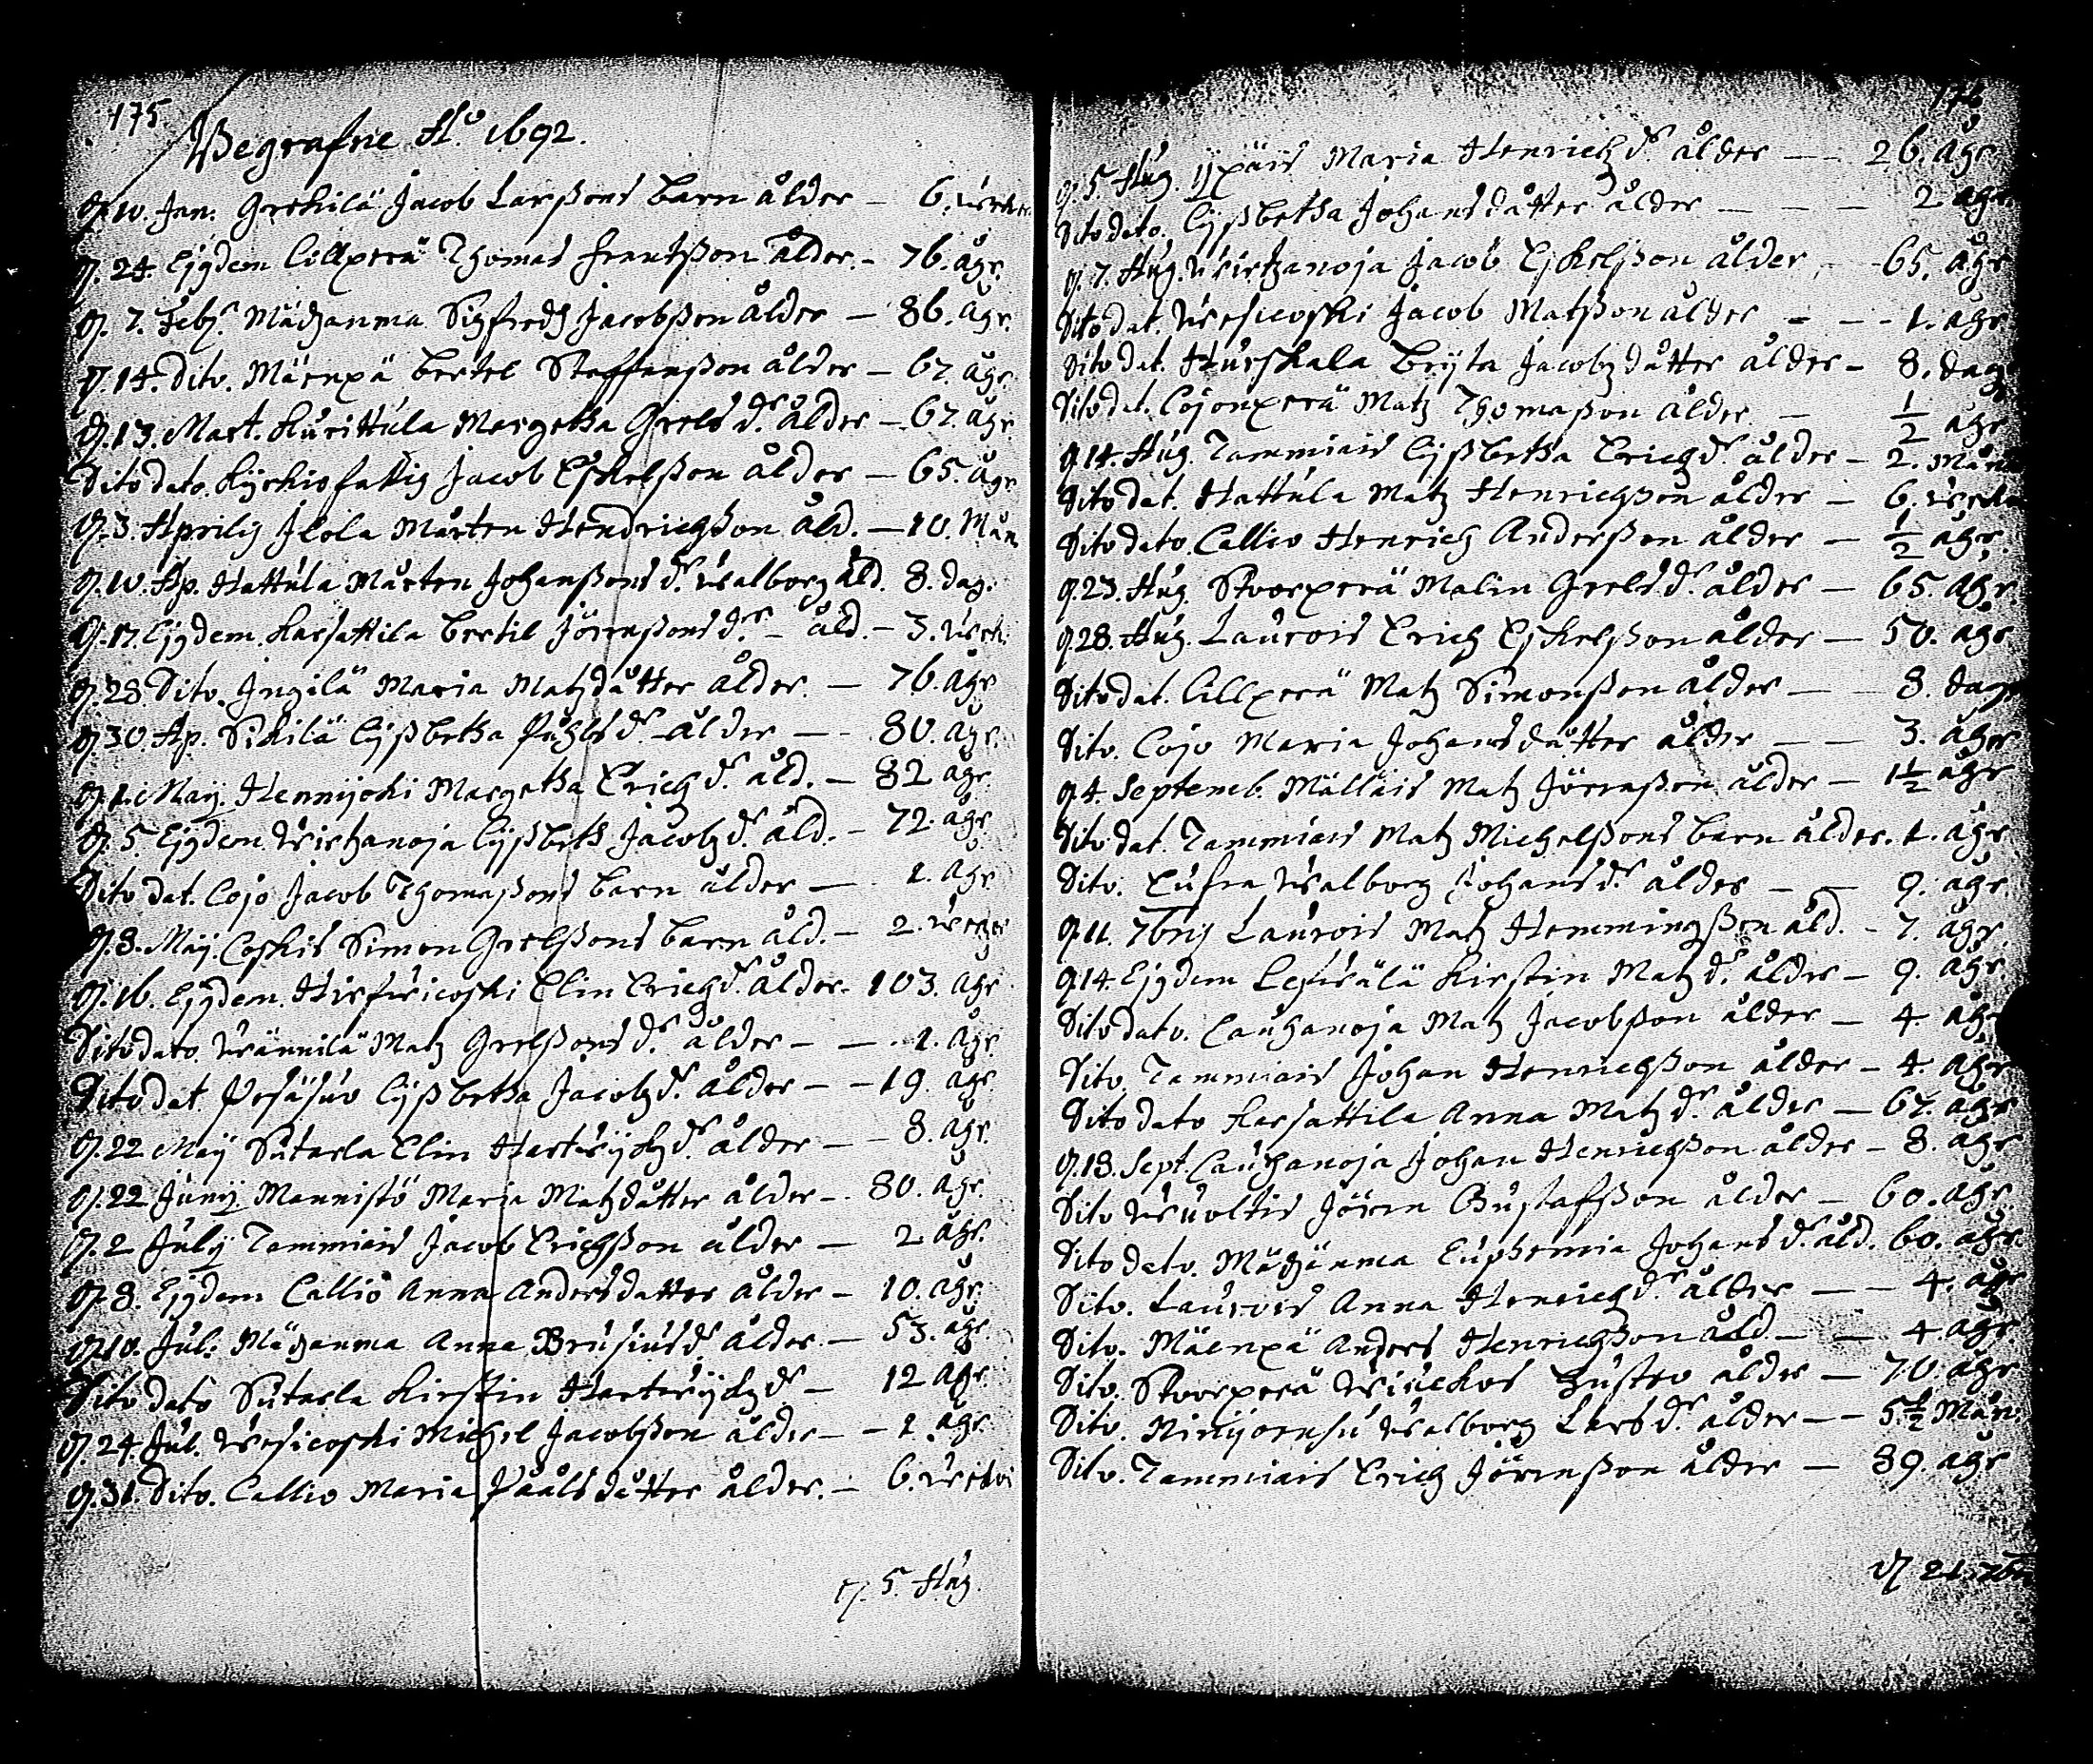 175.
Begrafne A:o 1692.
D. 10. Jan. Grekilä Jacob Larßons barn ålder — 6. weckor
D. 24. Ejgdem Cillperä Thomas Frantßon ålder. — 76. åhr.
D. 7. Feb: Mäghanma Sigfredh Jacobßon ålder — 86. åhr.
D. 14. Dito. Mäenpä Bertel Steffanßon ålder — 67. åhr.
D. 13. Mart. Kurittula Margetha Grels d:r ålder — 67. åhr.
Dito dato. Kyrkiofattig Jacob Eskelßon ålder — 65. åhr.
D. 3. Aprilij Ilola Mårten Hendrichßon åld. — 10. Mån.
D. 10. Ap. Hattula Mårten Johanßons d:r Walborg åld. 8. dag.
D. 17. Ejgdem. Karsattila Bertil Jörenßons d:r — åld. — 3. weck.
D. 28. Dito. Ingilä Maria Matzdåtter ålder. — 76. åhr
D. 30. Ap. Sikilä Lijßbetha Påhls d:r ålder — 80. åhr.
D. 1. Maij. Hennijoki Margetha Erichz d:r åld. — 82 åhr.
D. 5. Ejgdem. Wirtzanoja Lijßbeth Jacobz d:r åld. — 72. åhr
Dito dat. Cojo Jacob Thomaßons barn ålder — 1. åhr.
D. 8. Maij. Coskis Simon Grelßons barn åld. — 2. weckor
D. 16. Ejgdem. Hirfwicoski Elin Erichz d:r ålder. 103. åhr
Dito dato. Wännilä Matz Grelßons d:r ålder — 1. åhr.
Dito dat. Pesäsuo Lijßbetha Jacobz d:r ålder — 19. åhr.
D. 22 Maij Sutarla Elin Hartwijkz d:r ålder — 8. åhr.
D. 22 Junij Mannistö Maria Matzdåtter ålder — 80. åhr.
D. 2 Julij Tammiais Jacob Erichßon ålder — 2 åhr.
D. 8. Ejgdem Callio Anna Andersdatter ålder — 10. åhr.
D. 10. Jul: Mäghanma Anna Brusius d:r ålder. — 53. åhr.
Dito dato Sutarla Kirstin Hartwijkz d:r — 12 åhr.
D. 24. Jul. Wesicoski Michel Jacobßon ålder — 1. åhr.
D. 31. Dito. Callio Maria Påålsdåtter ålder. — 6. weckor
D. 5. Aug.
176
D. 5. Aug. Ijpäis Maria Henrichz d:r ålder — 26. åhr
Dito dato. Lijßbetha Johansdåtter ålder — 2 åhr.
D. 7. Aug. Wirtzanoja Jacob Eskelßon ålder — 65. åhr
Dito dat. Wesicoski Jacob Matßon ålder — 1. åhr
Dito dat. Hurskala Bryta Jacobzdåtter ålder — 8. dag
Dito dat. Cojonperä Matz Thomaßon ålder — ½ åhr
D. 14. Aug. Tammiais Lijßbetha Erichz d:r ålder — 2. Mån
Dito dat. Hattula Matz Henrichßon ålder — 6. weckor
Dito dato. Callio Henrich Anderßon ålder — ½ åhr.
D. 23. Aug. Stoorperä Malin Grels d:r ålder — 65. åhr.
D. 28. Aug. Laurois Erich Eskelßon ålder — 50. åhr
Dito dat. Cillperä Matz Simonßon ålder — 8. dagar
Dito. Cojo Maria Johansdåtter ålder — 3. åhr
D. 4. Septemb. Mälläis Matz Jörenßon ålder — 1½ åhr
Dito dat. Tammiais Matz Michelßons barn ålder. 1. åhr
Dito. Eufra Walborg Johans d:r ålder — 9. åhr.
D. 11. 7brij Laurois Matz Hemmingßon åld. — 7. åhr.
D. 14. Ejgdem Kirstin Matz d:r ålder — 9. åhr.
Dito dato. Cauhanoja Matz Jacobßon ålder — 4. åhr
Dito. Tammiais Johan Henrichßon ålder — 4. åhr
Dito dato Karsattila Anna Matz d:r ålder — 67. åhr
D. 18. Sept. Cauhanoja Johan Henrichßon ålder — 8. åhr
Dito Wuoltis Jören Gustafßon ålder — 60. åhr.
Dito dato. Mäghänma Euphemia Johans d:r åld. 60. åhr.
Dito. Laurois Anna Henrichz d:r ålder — 4. åhr
Dito. Mäenpä Anders Henrichßon åld — 4 åhr
Dito. Stoorperä hustro ålder — 70. åhr
Dito. Ninijoensu Walborg Lars d:r ålder — 5½ Mån.
Dito. Tammiais Erich Jörenßon ålder — 89. åhr
D 21. 7br